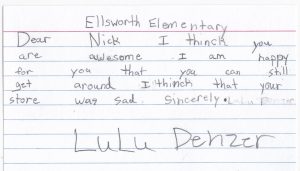 Ellsworth Elementary
Dear Nick I thinck you
are awesome. I am happy
for you that you can still
get around I thinck that your
store was sad. Sincerely. LuLu Denzer
LuLu Denzer